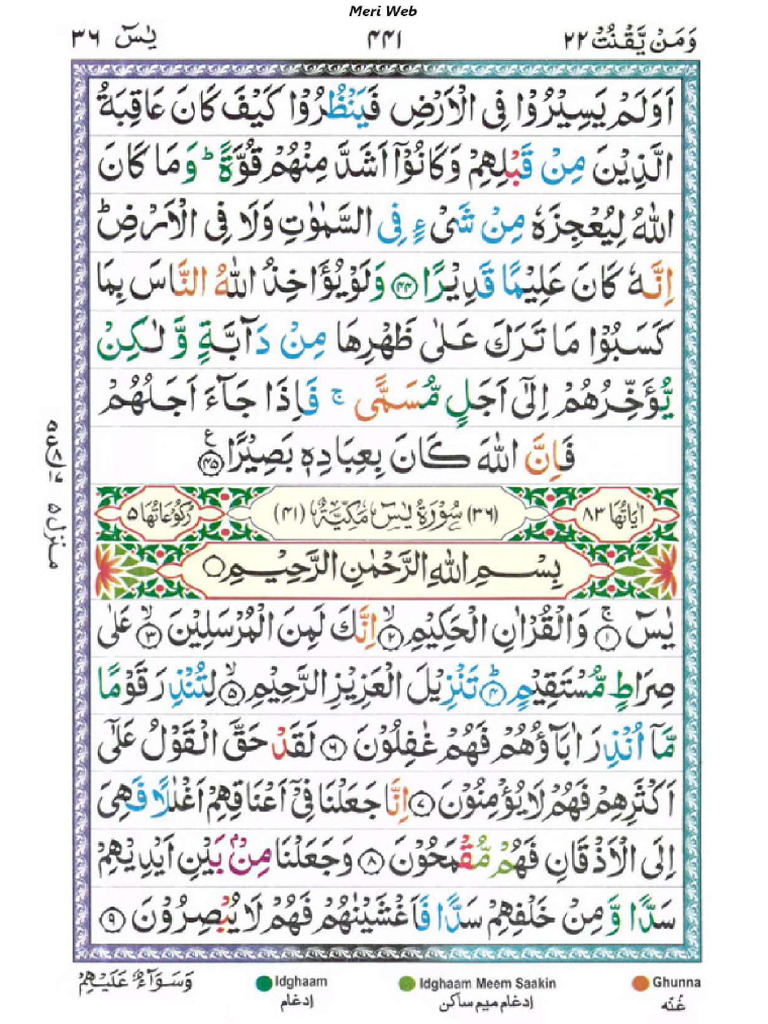 Meri Web
وَمَنۡ يَّقۡنُتۡ ۲۲
۴۴۱
يٰسٓ ۳۶
اَوَلَمۡ يَسِيۡرُوۡا فِى الۡاَرۡضِ فَيَنۡظُرُوۡا كَيۡفَ كَانَ عَاقِبَةُ
الَّذِيۡنَ مِنۡ قَبۡلِهِمۡ وَكَانُوۡۤا اَشَدَّ مِنۡهُمۡ قُوَّةً ؕ وَمَا كَانَ
اللّٰهُ لِيُعۡجِزَهٗ مِنۡ شَىۡءٍ فِى السَّمٰوٰتِ وَلَا فِى الۡاَرۡضِ ؕ
اِنَّهٗ كَانَ عَلِيۡمًا قَدِيۡرًا ﴿۴۴﴾ وَلَوۡ يُؤَاخِذُ اللّٰهُ النَّاسَ بِمَا
كَسَبُوۡا مَا تَرَكَ عَلٰى ظَهۡرِهَا مِنۡ دَآبَّةٍ وَّلٰكِنۡ
يُّؤَخِّرُهُمۡ اِلٰٓى اَجَلٍ مُّسَمًّى ۚ فَاِذَا جَآءَ اَجَلُهُمۡ
فَاِنَّ اللّٰهَ كَانَ بِعِبَادِهٖ بَصِيۡرًا ﴿۴۵﴾ ع
اٰيَاتُهَا ۸۳
(۳۶) سُوۡرَةُ يٰسٓ مَكِّيَّةٌ (۴۱)
رُكُوۡعَاتُهَا ۵
بِسۡمِ اللّٰهِ الرَّحۡمٰنِ الرَّحِيۡمِ
يٰسٓ ۚ ﴿۱﴾ وَالۡقُرۡاٰنِ الۡحَكِيۡمِ ۙ ﴿۲﴾ اِنَّكَ لَمِنَ الۡمُرۡسَلِيۡنَ ۙ ﴿۳﴾ عَلٰى
صِرَاطٍ مُّسۡتَقِيۡمٍ ؕ ﴿۴﴾ تَنۡزِيۡلَ الۡعَزِيۡزِ الرَّحِيۡمِ ۙ ﴿۵﴾ لِتُنۡذِرَ قَوۡمًا
مَّاۤ اُنۡذِرَ اٰبَآؤُهُمۡ فَهُمۡ غٰفِلُوۡنَ ﴿۶﴾ لَقَدۡ حَقَّ الۡقَوۡلُ عَلٰٓى
اَكۡثَرِهِمۡ فَهُمۡ لَا يُؤۡمِنُوۡنَ ﴿۷﴾ اِنَّا جَعَلۡنَا فِىۡۤ اَعۡنَاقِهِمۡ اَغۡلٰلًا فَهِىَ
اِلَى الۡاَذۡقَانِ فَهُمۡ مُّقۡمَحُوۡنَ ﴿۸﴾ وَجَعَلۡنَا مِنۡۢ بَيۡنِ اَيۡدِيۡهِمۡ
سَدًّا وَّمِنۡ خَلۡفِهِمۡ سَدًّا فَاَغۡشَيۡنٰهُمۡ فَهُمۡ لَا يُبۡصِرُوۡنَ ﴿۹﴾
منزل ۵
وَسَوَآءٌ عَلَيۡهِمۡ
Idghaam
ادغام
Idghaam Meem Saakin
ادغام میم ساکن
Ghunna
غُنّه